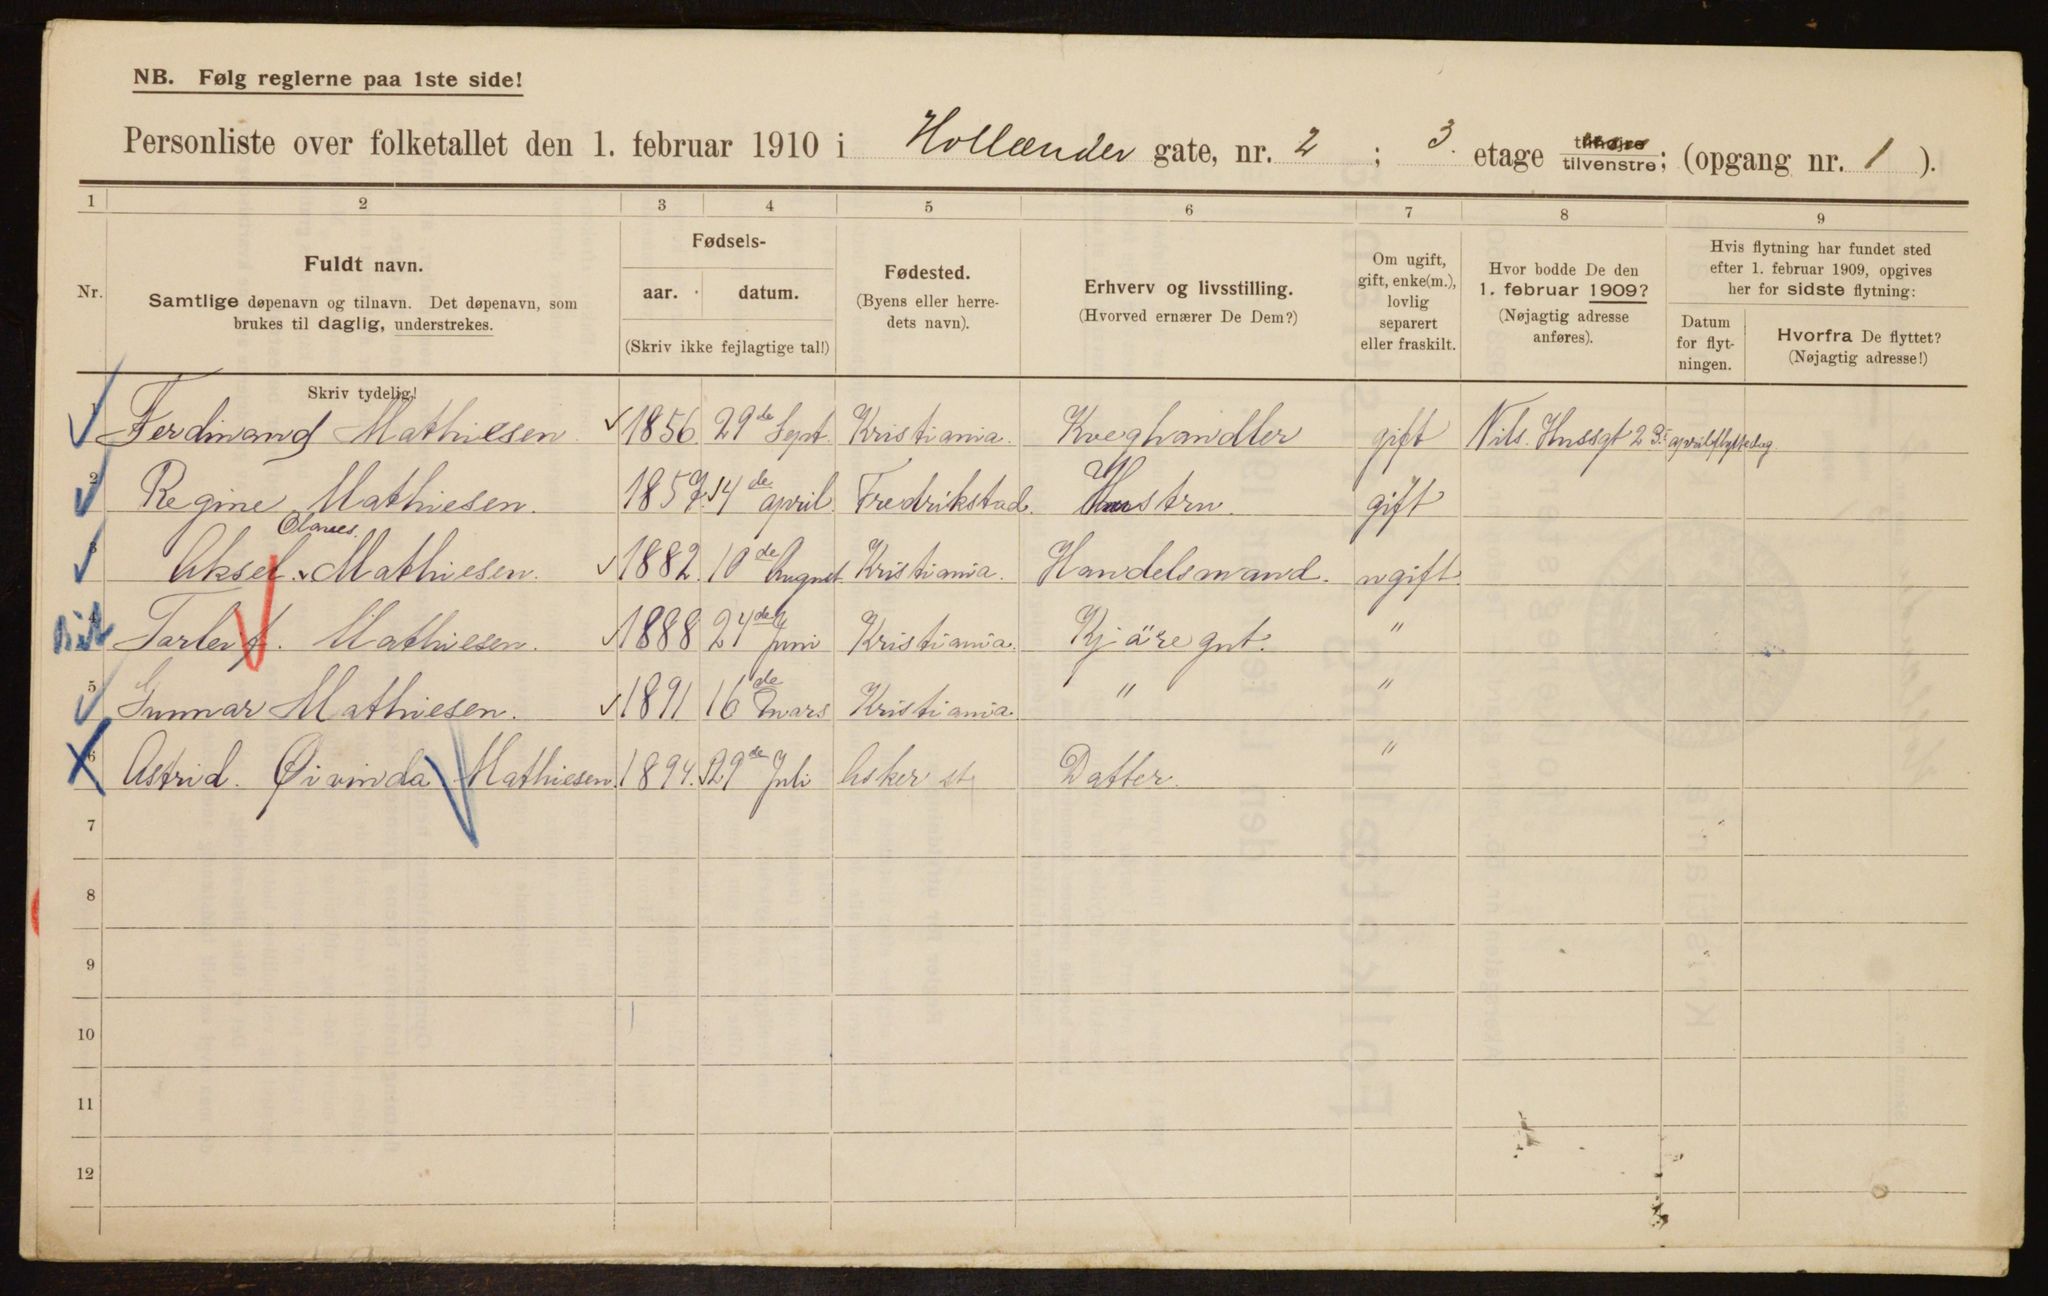 NB. Følg reglerne paa 1ste side!
Personliste over folketallet den 1. februar 1910 i Hollænder gate, nr. 2 ; 3. etage tilvenstre; (opgang nr. 1 ).
1 2 3 4 5 6 7 8 9
Nr.
Fuldt navn.
Samtlige døpenavn og tilnavn. Det døpenavn, som
brukes til daglig, understrekes.
Skriv tydelig!
Fødsels-
aar. datum.
(Skriv ikke fejlagtige tal!)
Fødested.
(Byens eller herre-
dets navn).
Erhverv og livsstilling.
(Hvorved ernærer De Dem?)
Om ugift,
gift, enke(m.),
lovlig
separert
eller fraskilt.
Hvor bodde De den
1. februar 1909?
(Nøjagtig adresse
anføres).
Hvis flytning har fundet sted
efter 1. februar 1909, opgives
her for sidste flytning:
Datum
for flyt-
ningen.
Hvorfra De flyttet?
(Nøjagtig adresse!)
1 Ferdinand Mathiesen. 1856 29de Sept Kristiania. Kveghandler gift Nils Hussgt 2 aprilflyttedag
2 Regine Mathiesen. 1857 14de april Fredrikstad. Hustru. gift
Olaves.
3 Aksel Mathiesen. 1882. 10de August Kristiania. Handelsmand. ugift
4 Torleif. Mathiesen. 1888 24de Juni Kristiania. Kjäregut. "
5 Gunnar Mathiesen. 1891 16de mars Kristiania. " "
6 Astrid. Øivinda Mathiesen. 1894. 29de Juli Asker st Datter. "
7
8
9
10
11
12